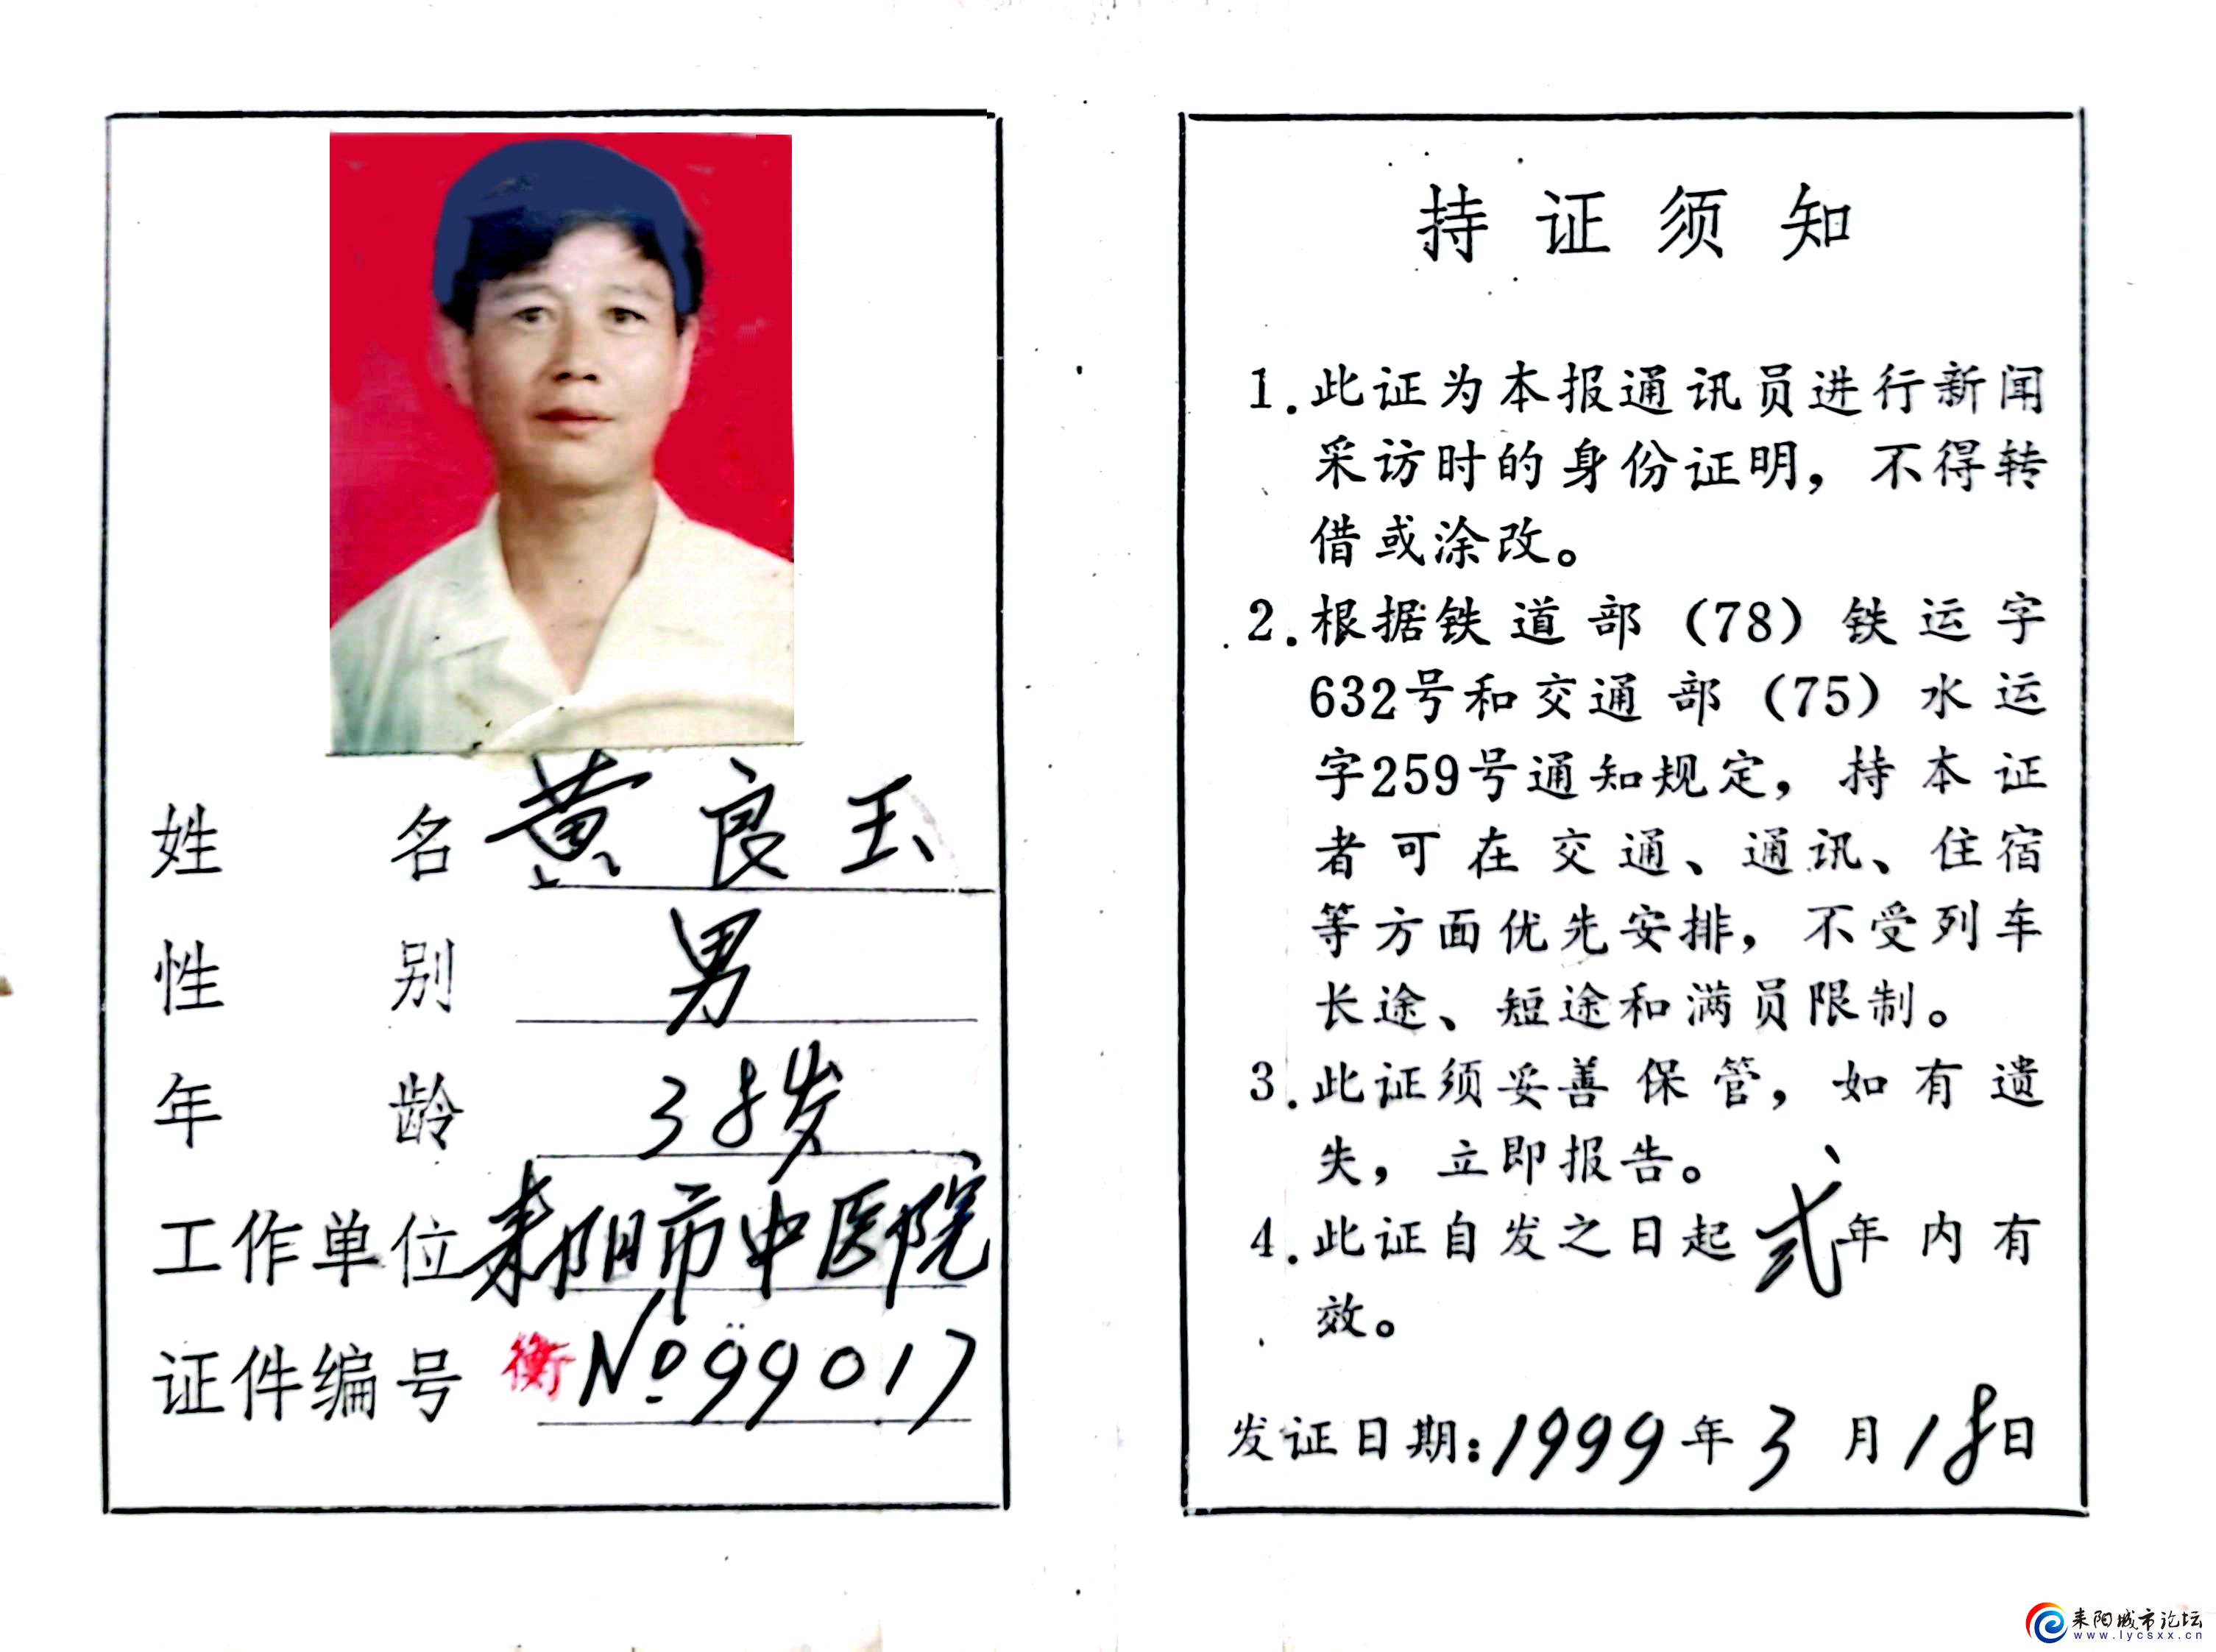 姓名 黄良玉
性别 男
年龄 38岁
工作单位 耒阳市中医院
证件编号 衡 No.99017
持证须知
1.此证为本报通讯员进行新闻
采访时的身份证明，不得转
借或涂改。
2.根据铁道部（78）铁运字
632号和交通部（75）水运
字259号通知规定，持本证
者可在交通、通讯、住宿
等方面优先安排，不受列车
长途、短途和满员限制。
3.此证须妥善保管，如有遗
失，立即报告。
4.此证自发之日起贰年内有
效。
发证日期：1999年3月18日
耒阳城市论坛
www.lycsxx.cn